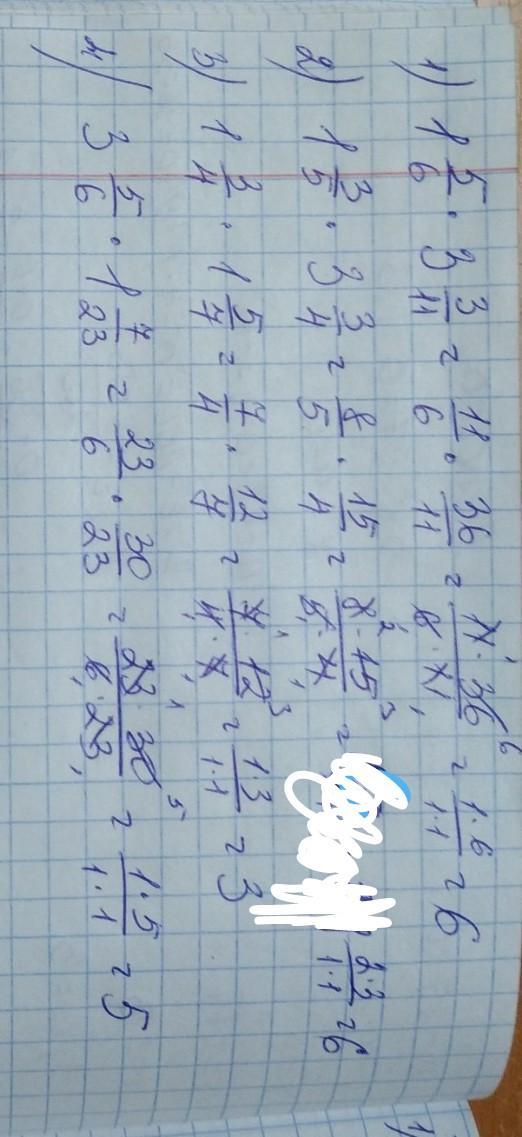 1) 1 5/6 · 3 3/11 = 11/6 · 36/11 = 11 · 36/6 · 11 = 1·6/1·1 = 6
2) 1 3/5 · 3 3/4 = 8/5 · 15/4 = 8 · 15/5 · 4 = 2·3/1·1 = 6
3) 1 3/4 · 1 5/7 = 7/4 · 12/7 = 7 · 12/4 · 7 = 1·3/1·1 = 3
4) 3 5/6 · 1 7/23 = 23/6 · 30/23 = 23 · 30/6 · 23 = 1·5/1·1 = 5
1)